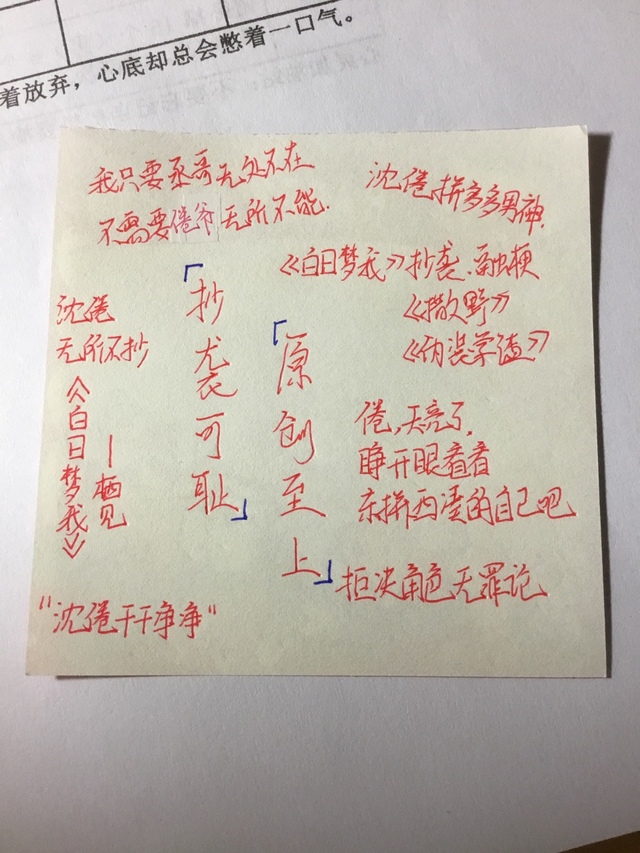 着放弃，心底却总会憋着一口气。
我只要丞哥无处不在
不需要倦爷无所不能.
沈倦拼多多男神.
《白日梦我》抄袭.融梗
《撒野》
《伪装学渣》
沈倦
无所不抄
《白日梦我》
—栖见
「抄袭可耻」
「原创至上」
倦,天亮了,
睁开眼看看
东拼西凑的自己吧
拒决角色无罪论
"沈倦干干净净"